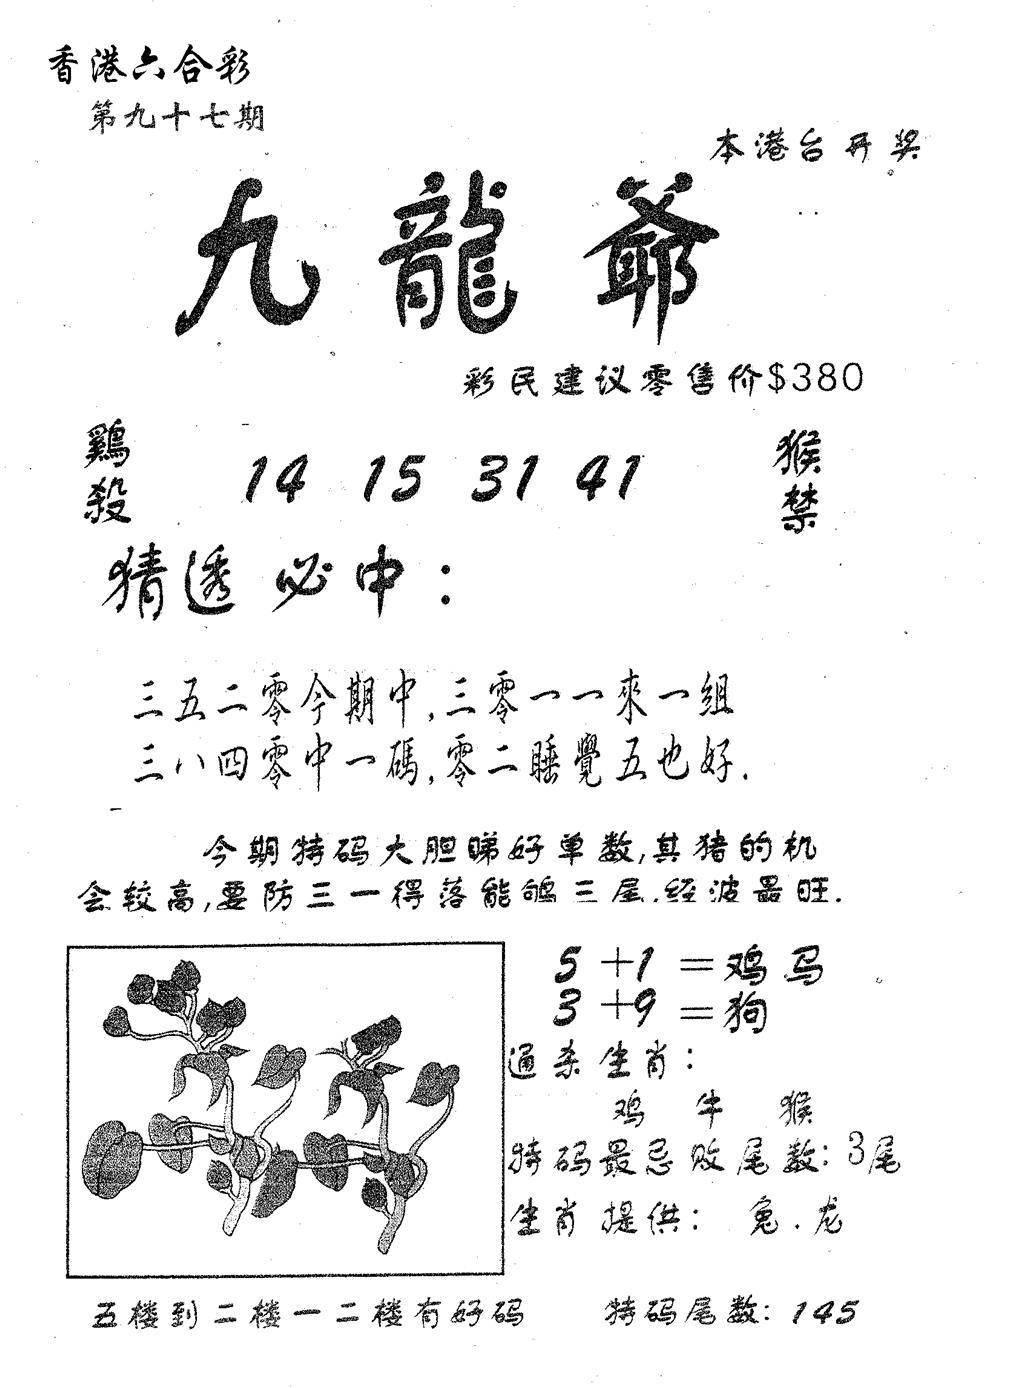 香港六合彩
第九十七期
本港台开奖
九龍爺
彩民建议零售价$380
鷄殺 14 15 31 41 猴禁
猜透必中：
三五二零今期中,三零一一來一組
三八四零中一碼,零二睡覺五也好.
今期特码大胆睇好单数,其猪的机
会较高,要防三一得落能鴝三尾.经波最旺.
5+1=鸡马
3+9=狗
通杀生肖：
鸡 牛 猴
特码最忌败尾数：3尾
生肖提供：兔.龙
五楼到二楼一二楼有好码 特码尾数：145